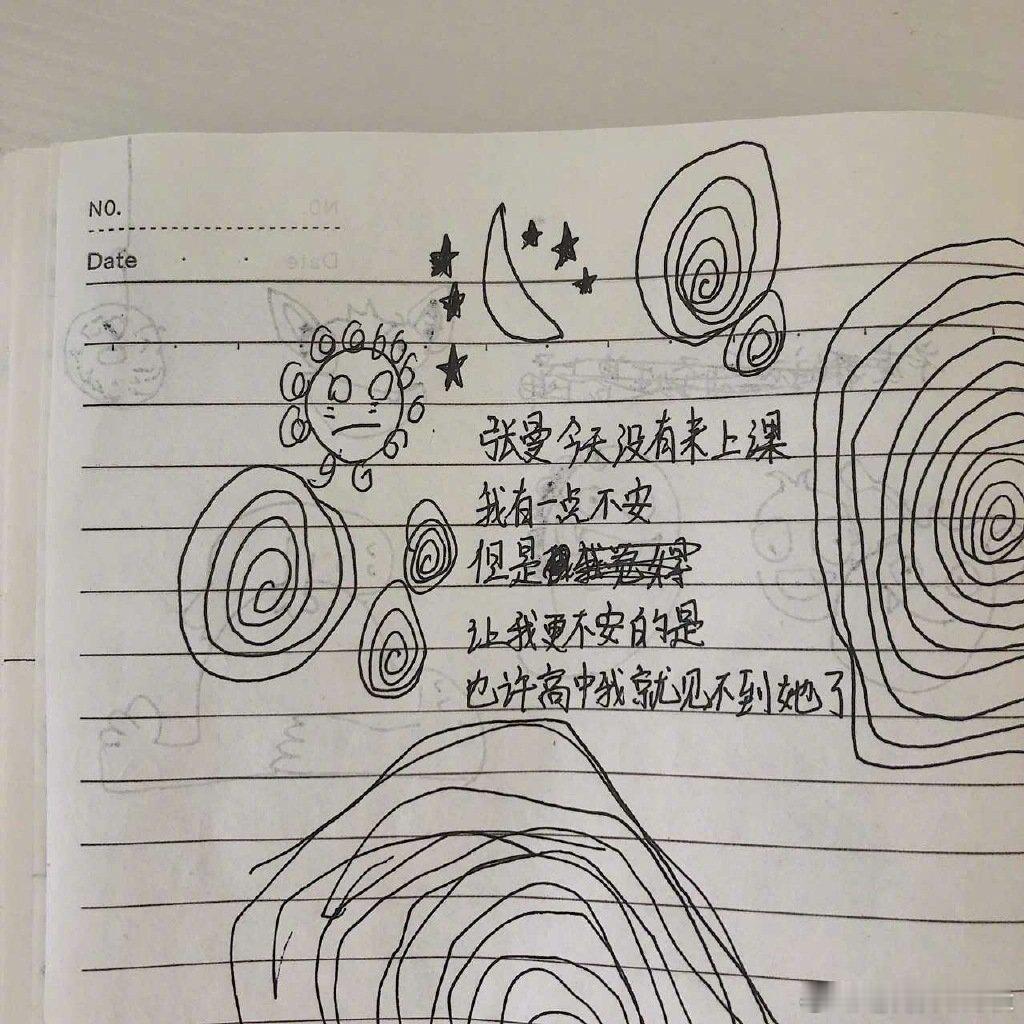 NO.
Date
张曼今天没有来上课
我有一点不安
但是
让我更不安的是
也许高中我就见不到她了